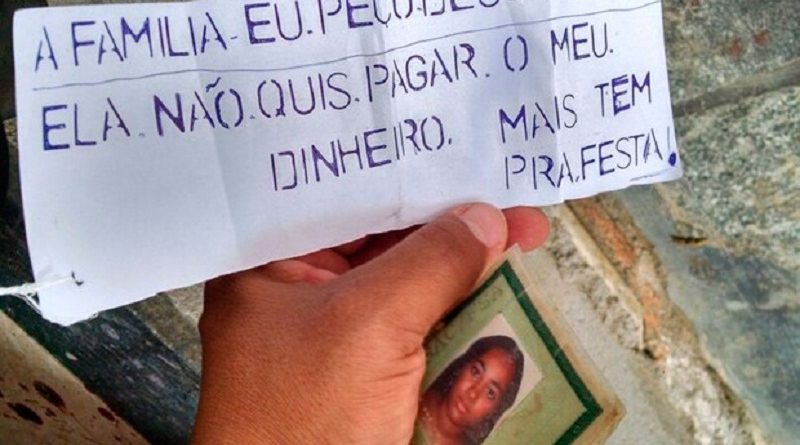 A FAMILIA - EU. PEÇO.
ELA. NÃO. QUIS. PAGAR. O MEU.
DINHEIRO. MAIS TEM
PRA. FESTA!